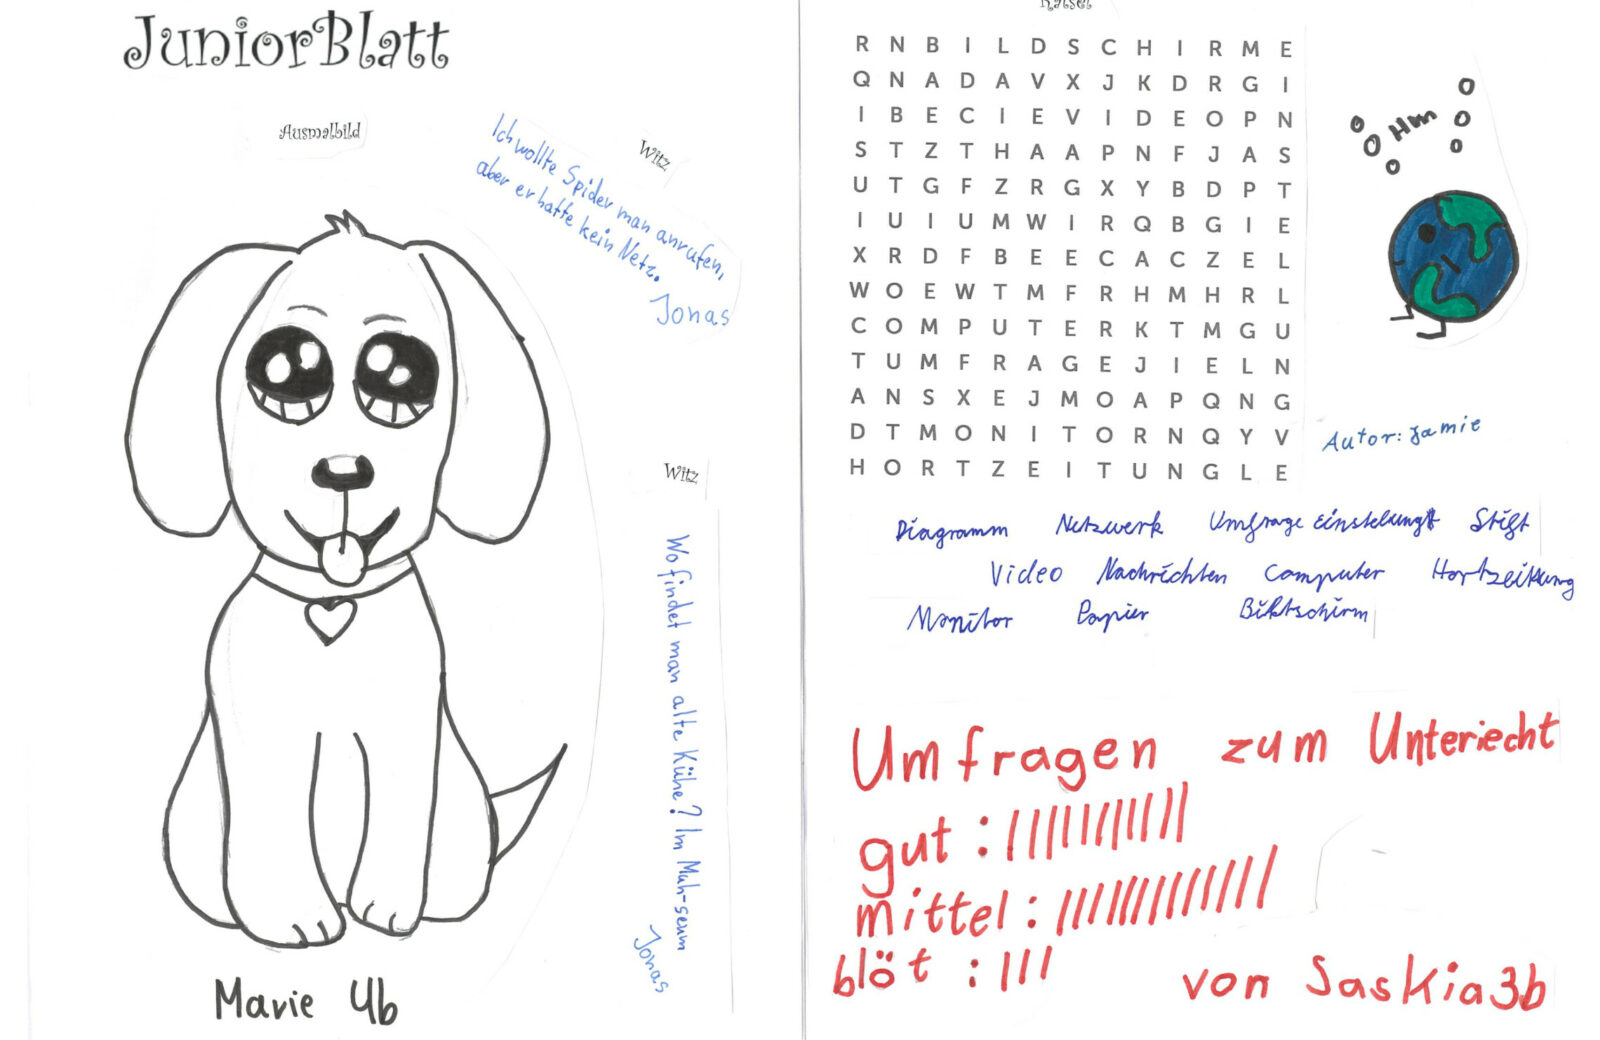 JuniorBlatt
Ausmalbild
Witz
Ich wollte Spider man anrufen,
aber er hatte kein Netz.
Jonas
Witz
Wo findet man alte Kühe? Im Muh-seum
Jonas
Marie 4b
Rätsel
R N B I L D S C H I R M E
Q N A D A V X J K D R G I
I B E C I E V I D E O P N
S T Z T H A A P N F J A S
U T G F Z R G X Y B D P T
I U I U M W I R Q B G I E
X R D F B E E C A C Z E L
W O E W T M F R H M H R L
C O M P U T E R K T M G U
T U M F R A G E J I E L N
A N S X E J M O A P Q N G
D T M O N I T O R N Q Y V
H O R T Z E I T U N G L E
Hm
Autor: Jamie
Diagramm Netzwerk Umfrage Einstelung Stift
Video Nachrichten Computer Hortzeitung
Monitor Papier Biltschirm
Umfragen zum Unteriecht
gut :
mittel :
blöt :
von Saskia 3b